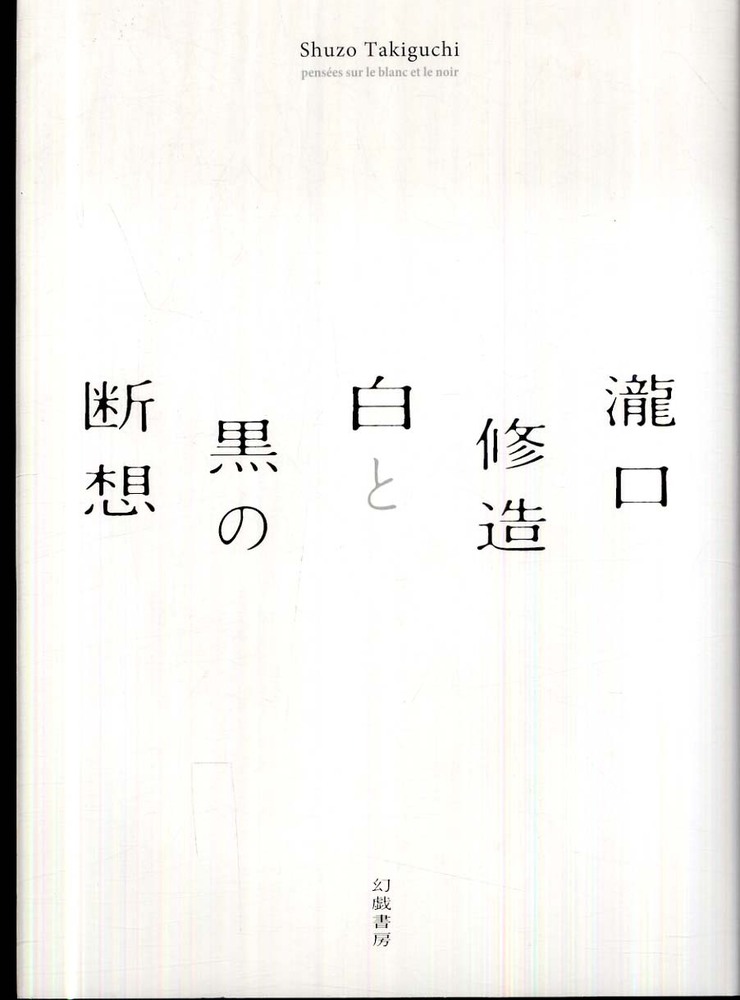 Shuzo Takiguchi
pensées sur le blanc et le noir
瀧口
修造
白と
黒の
断想
幻戯書房